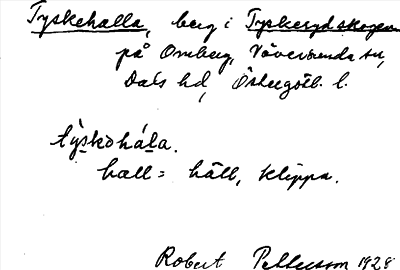 Tyskehalla, berg i Tyskerydskogen
på Omberg, Väversunda sn,
Dals hd, Östergötl. l.
tỳskǝhála.
hall = häll, klippa.
Robert Pettersson 1928